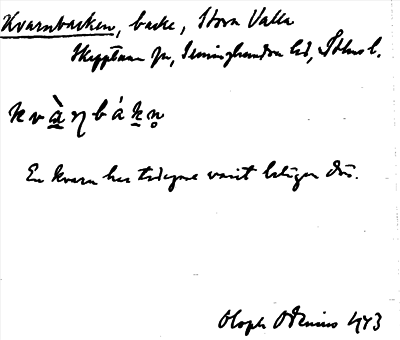 Kvarnbacken, backe, Stora Valla
Skepptuna sn, Seminghundra hd, Sthms l.
kvàŋbákn̥
En kvarn har tidigare varit belägen där.
Oloph Odenius 1943